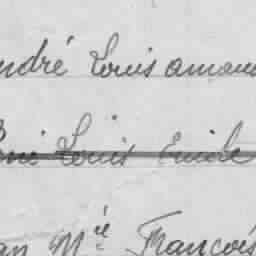 ndré Louis aman
Louis Emile
an Mie François